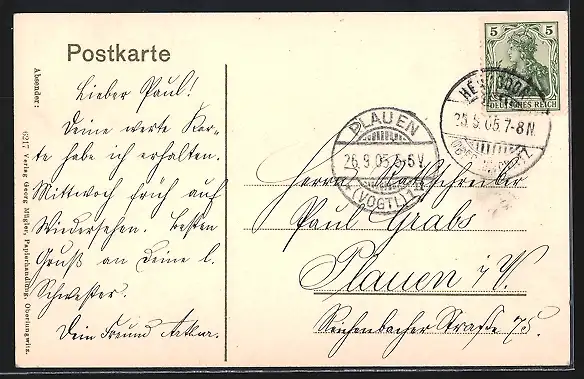 Postkarte
Absender:
6217 Verlag Georg Mügler, Papierhandlung, Oberlungwitz.
Lieber Paul!
Deine werte Kar-
te habe ich erhalten.
Mittwoch früh auf
Wiedersehen. Besten
Gruß an Deine l.
Schwester.
Dein Freund Arthur.
5
DEUTSCHES REICH
25.9.05.7-8N.
PLAUEN
26.9.05.5-6V.
(VOGTL)1
Herrn Ratsschreiber
Paul Grabs
Plauen i/V.
Reichenbacher Straße 75.